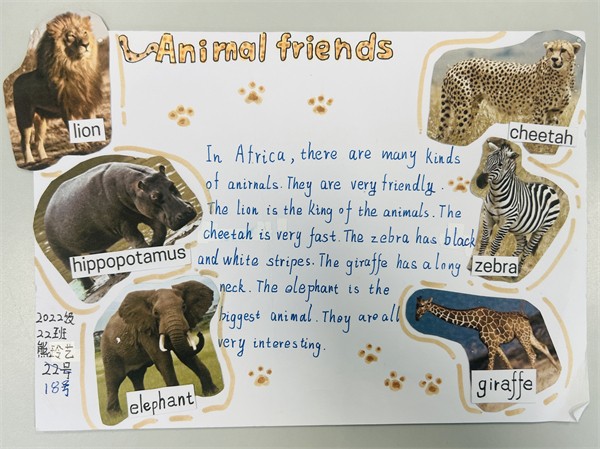 Animal friends
lion
cheetah
In Africa, there are many kinds
of animals. They are very friendly.
The lion is the king of the animals. The
cheetah is very fast. The zebra has black
and white stripes. The giraffe has a long
neck. The elephant is the
biggest animal. They are all
very interesting.
hippopotamus
zebra
elephant
giraffe
2022级
22班
熊艺
22号
18号